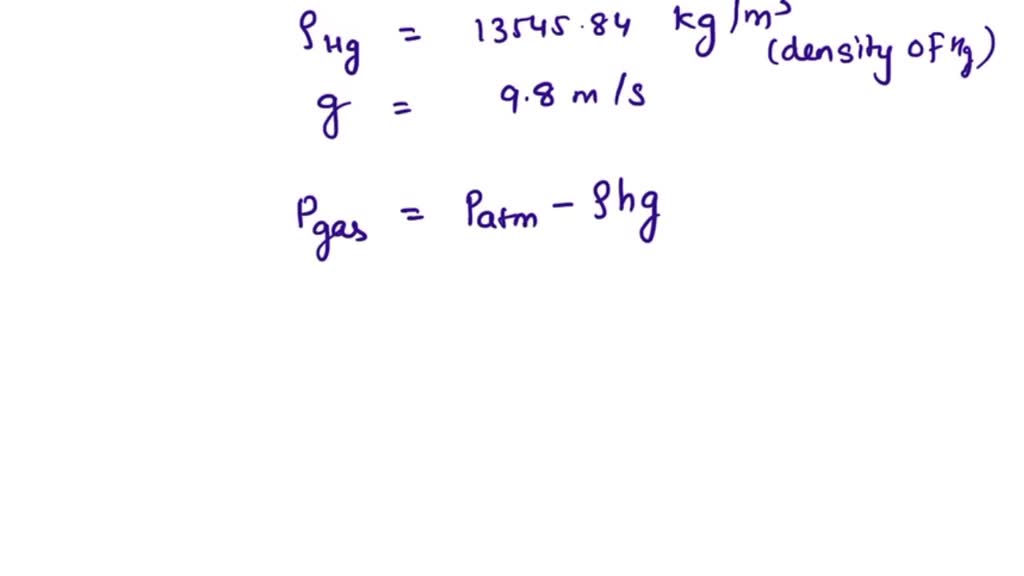 ρHg = 13545.84 kg/m³
(density of Hg)
g = 9.8 m/s
Pgas = Patm - ρhg